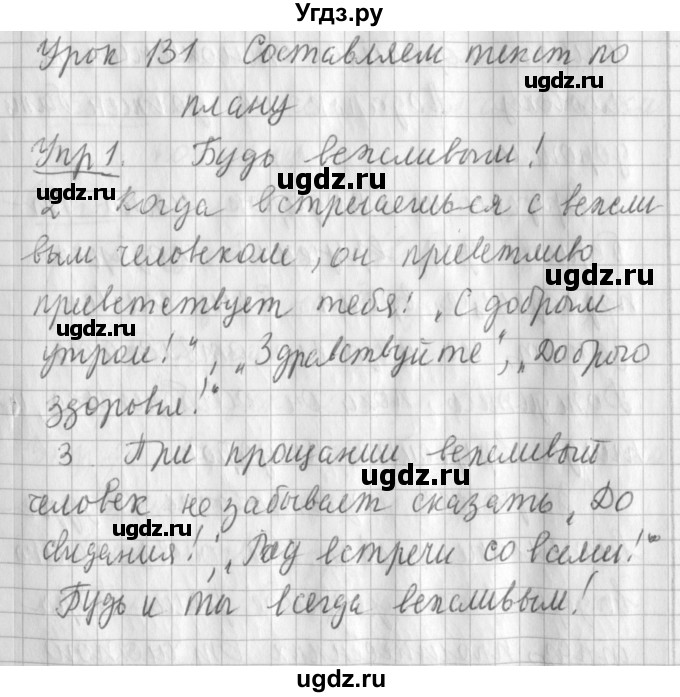 Угдз.ру
Урок 131 Составляем текст по
ugdz.ru
плану
ugdz.ru
Упр 1. Будь вежливым!
ugdz.ru
ugdz.ru
2 Когда встречаешься с вежли
вым человеком, он приветливо
ugdz.ru
приветствует тебя: „С добрым
ugdz.ru
утром!“, „Здравствуйте“, „Доброго
ugdz.ru
здоровья!“
3 При прощании вежливый
ugdz.ru
человек не забывает сказать „До
ugdz.ru
свидания!“, „Рад встречи со всеми!“
ugdz.ru
Будь и ты всегда вежливым!
ugdz.ru
ugdz.ru